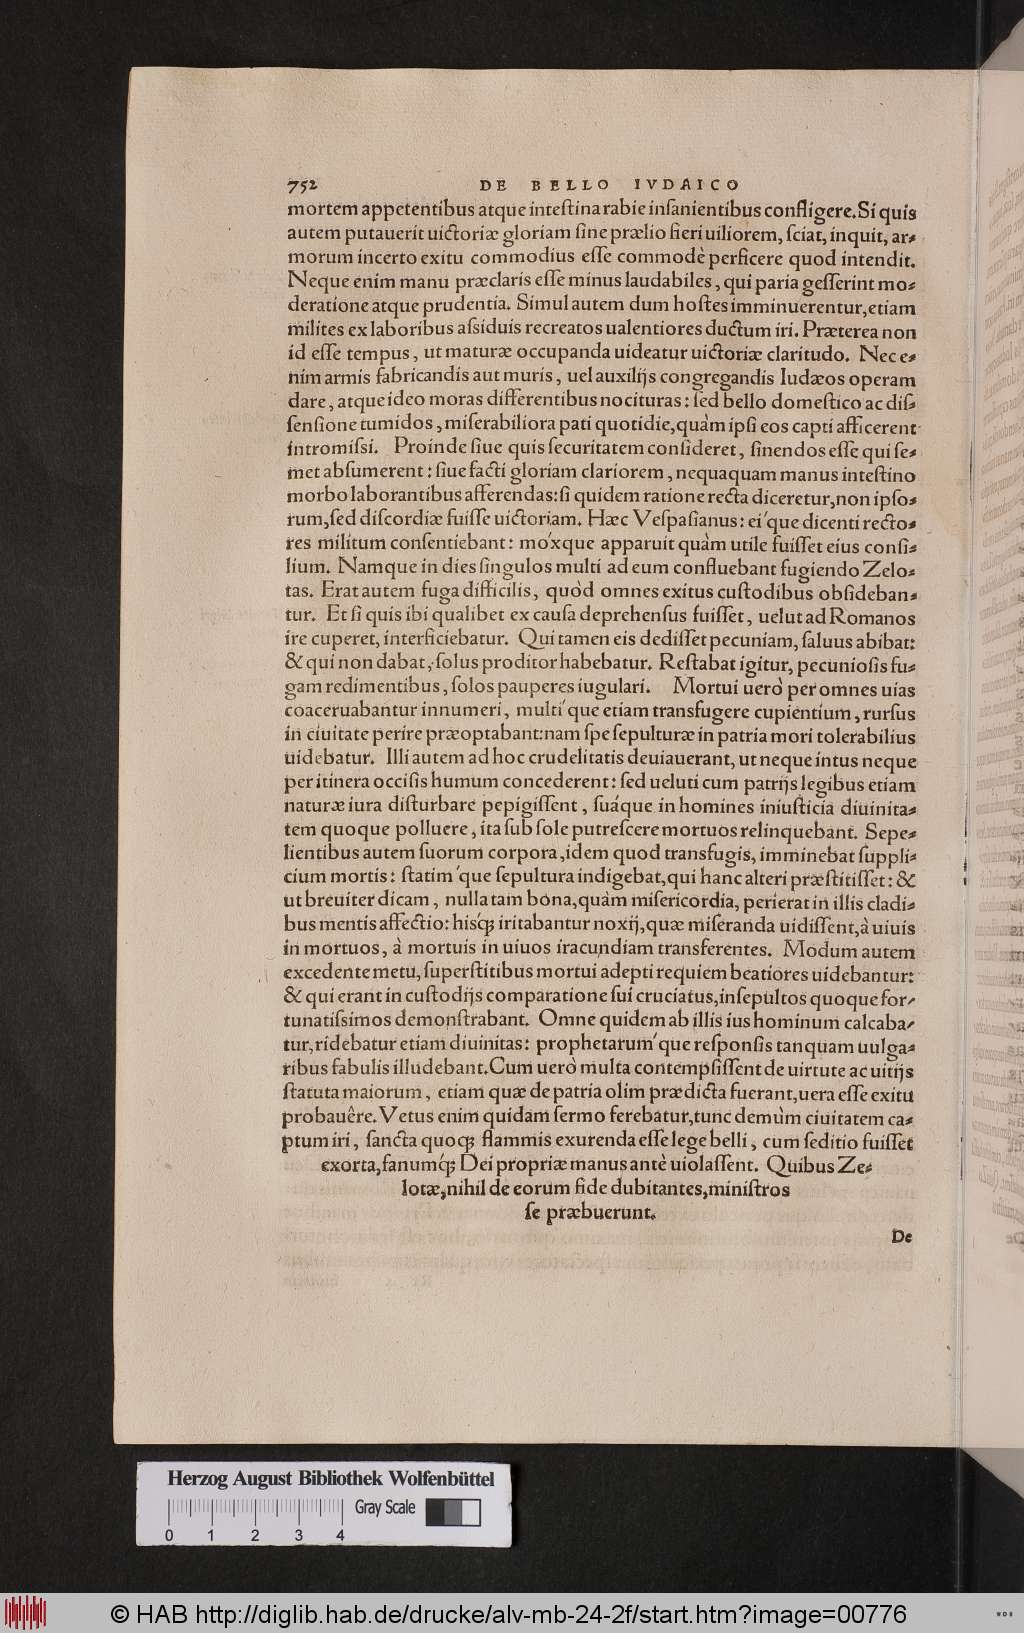 752 DE BELLO IVDAICO
mortem appetentibus atque inteſtina rabie inſanientibus confligere. Si quis
autem putauerit uictoriæ gloriam ſine prælio fieri uiliorem, ſciat, inquit, ar-
morum incerto exitu commodius eſſe commodè perficere quod intendit.
Neque enim manu præclaris eſſe minus laudabiles, qui paria geſſerint mo-
deratione atque prudentia. Simul autem dum hoſtes imminuerentur, etiam
milites ex laboribus aſsiduis recreatos ualentiores ductum iri. Præterea non
id eſſe tempus, ut maturæ occupanda uideatur uictoriæ claritudo. Nec e-
nim armis fabricandis aut muris, uel auxilijs congregandis Iudæos operam
dare, atque ideo moras differentibus nocituras: ſed bello domeſtico ac diſ-
ſenſione tumidos, miſerabiliora pati quotidie, quàm ipſi eos capti afficerent
intromiſsi. Proinde ſiue quis ſecuritatem conſideret, ſinendos eſſe qui ſe-
met abſumerent: ſiue facti gloriam clariorem, nequaquam manus inteſtino
morbo laborantibus afferendas: ſi quidem ratione recta diceretur, non ipſo-
rum, ſed diſcordiæ fuiſſe uictoriam. Hæc Veſpaſianus: ei´que dicenti recto-
res militum conſentiebant: mo´xque apparuit quàm utile fuiſſet eius conſi-
lium. Namque in dies ſingulos multi ad eum confluebant fugiendo Zelo-
tas. Erat autem fuga difficilis, quòd omnes exitus cuſtodibus obſideban-
tur. Et ſi quis ibi qualibet ex cauſa deprehenſus fuiſſet, uelut ad Romanos
ire cuperet, interficiebatur. Qui tamen eis dediſſet pecuniam, ſaluus abibat:
& qui non dabat, ſolus proditor habebatur. Reſtabat igitur, pecunioſis fu-
gam redimentibus, ſolos pauperes iugulari. Mortui uerò per omnes uias
coaceruabantur innumeri, multi´que etiam transfugere cupientium, rurſus
in ciuitate perire præoptabant: nam ſpe ſepulturæ in patria mori tolerabilius
uidebatur. Illi autem ad hoc crudelitatis deuiauerant, ut neque intus neque
per itinera occiſis humum concederent: ſed ueluti cum patrijs legibus etiam
naturæ iura diſturbare pepigiſſent, ſuáque in homines iniuſticia diuinita-
tem quoque polluere, ita ſub ſole putreſcere mortuos relinquebant. Sepe-
lientibus autem ſuorum corpora, idem quod transfugis, imminebat ſuppli-
cium mortis: ſtatim´que ſepultura indigebat, qui hanc alteri præſtitiſſet: &
ut breuiter dicam, nulla tam bona, quàm miſericordia, perierat in illis cladi-
bus mentis affectio: hisq́; iritabantur noxij, quæ miſeranda uidiſſent, à uiuis
in mortuos, à mortuis in uiuos iracundiam transferentes. Modum autem
excedente metu, ſuperſtitibus mortui adepti requiem beatiores uidebantur:
& qui erant in cuſtodijs comparatione ſui cruciatus, inſepultos quoque for-
tunatiſsimos demonſtrabant. Omne quidem ab illis ius hominum calcaba-
tur, ridebatur etiam diuinitas: prophetarum´que reſponſis tanquam uulga-
ribus fabulis illudebant. Cum uerò multa contempſiſſent de uirtute ac uitijs
ſtatuta maiorum, etiam quæ de patria olim prædicta fuerant, uera eſſe exitu
probauêre. Vetus enim quidam ſermo ferebatur, tunc demùm ciuitatem ca-
ptum iri, ſancta quoq; flammis exurenda eſſe lege belli, cum ſeditio fuiſſet
exorta, fanumq́; Dei propriæ manus antè uiolaſſent. Quibus Ze-
lotæ, nihil de eorum fide dubitantes, miniſtros
ſe præbuerunt.
De
Herzog August Bibliothek Wolfenbüttel
Gray Scale
0 1 2 3 4
© HAB http://diglib.hab.de/drucke/alv-mb-24-2f/start.htm?image=00776